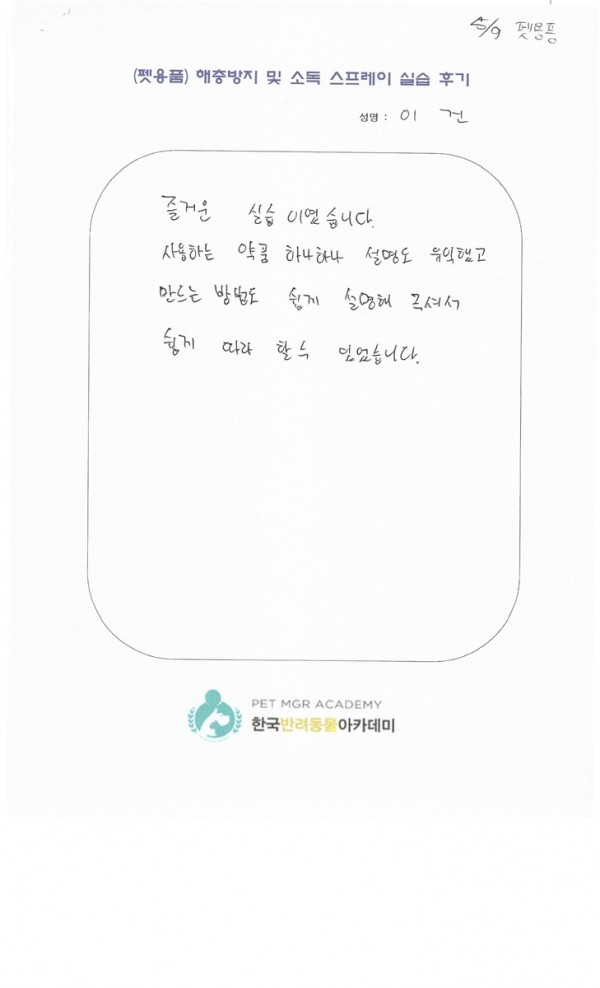 5/9 펫용품
(펫용품) 해충방지 및 소독 스프레이 실습 후기
성명 : 이 건
즐거운 실습 이였습니다.
사용하는 약품 하나하나 설명도 유익했고
만드는 방법도 쉽게 설명해 주셔서
쉽게 따라 할 수 있었습니다.
PET MGR ACADEMY
한국반려동물아카데미